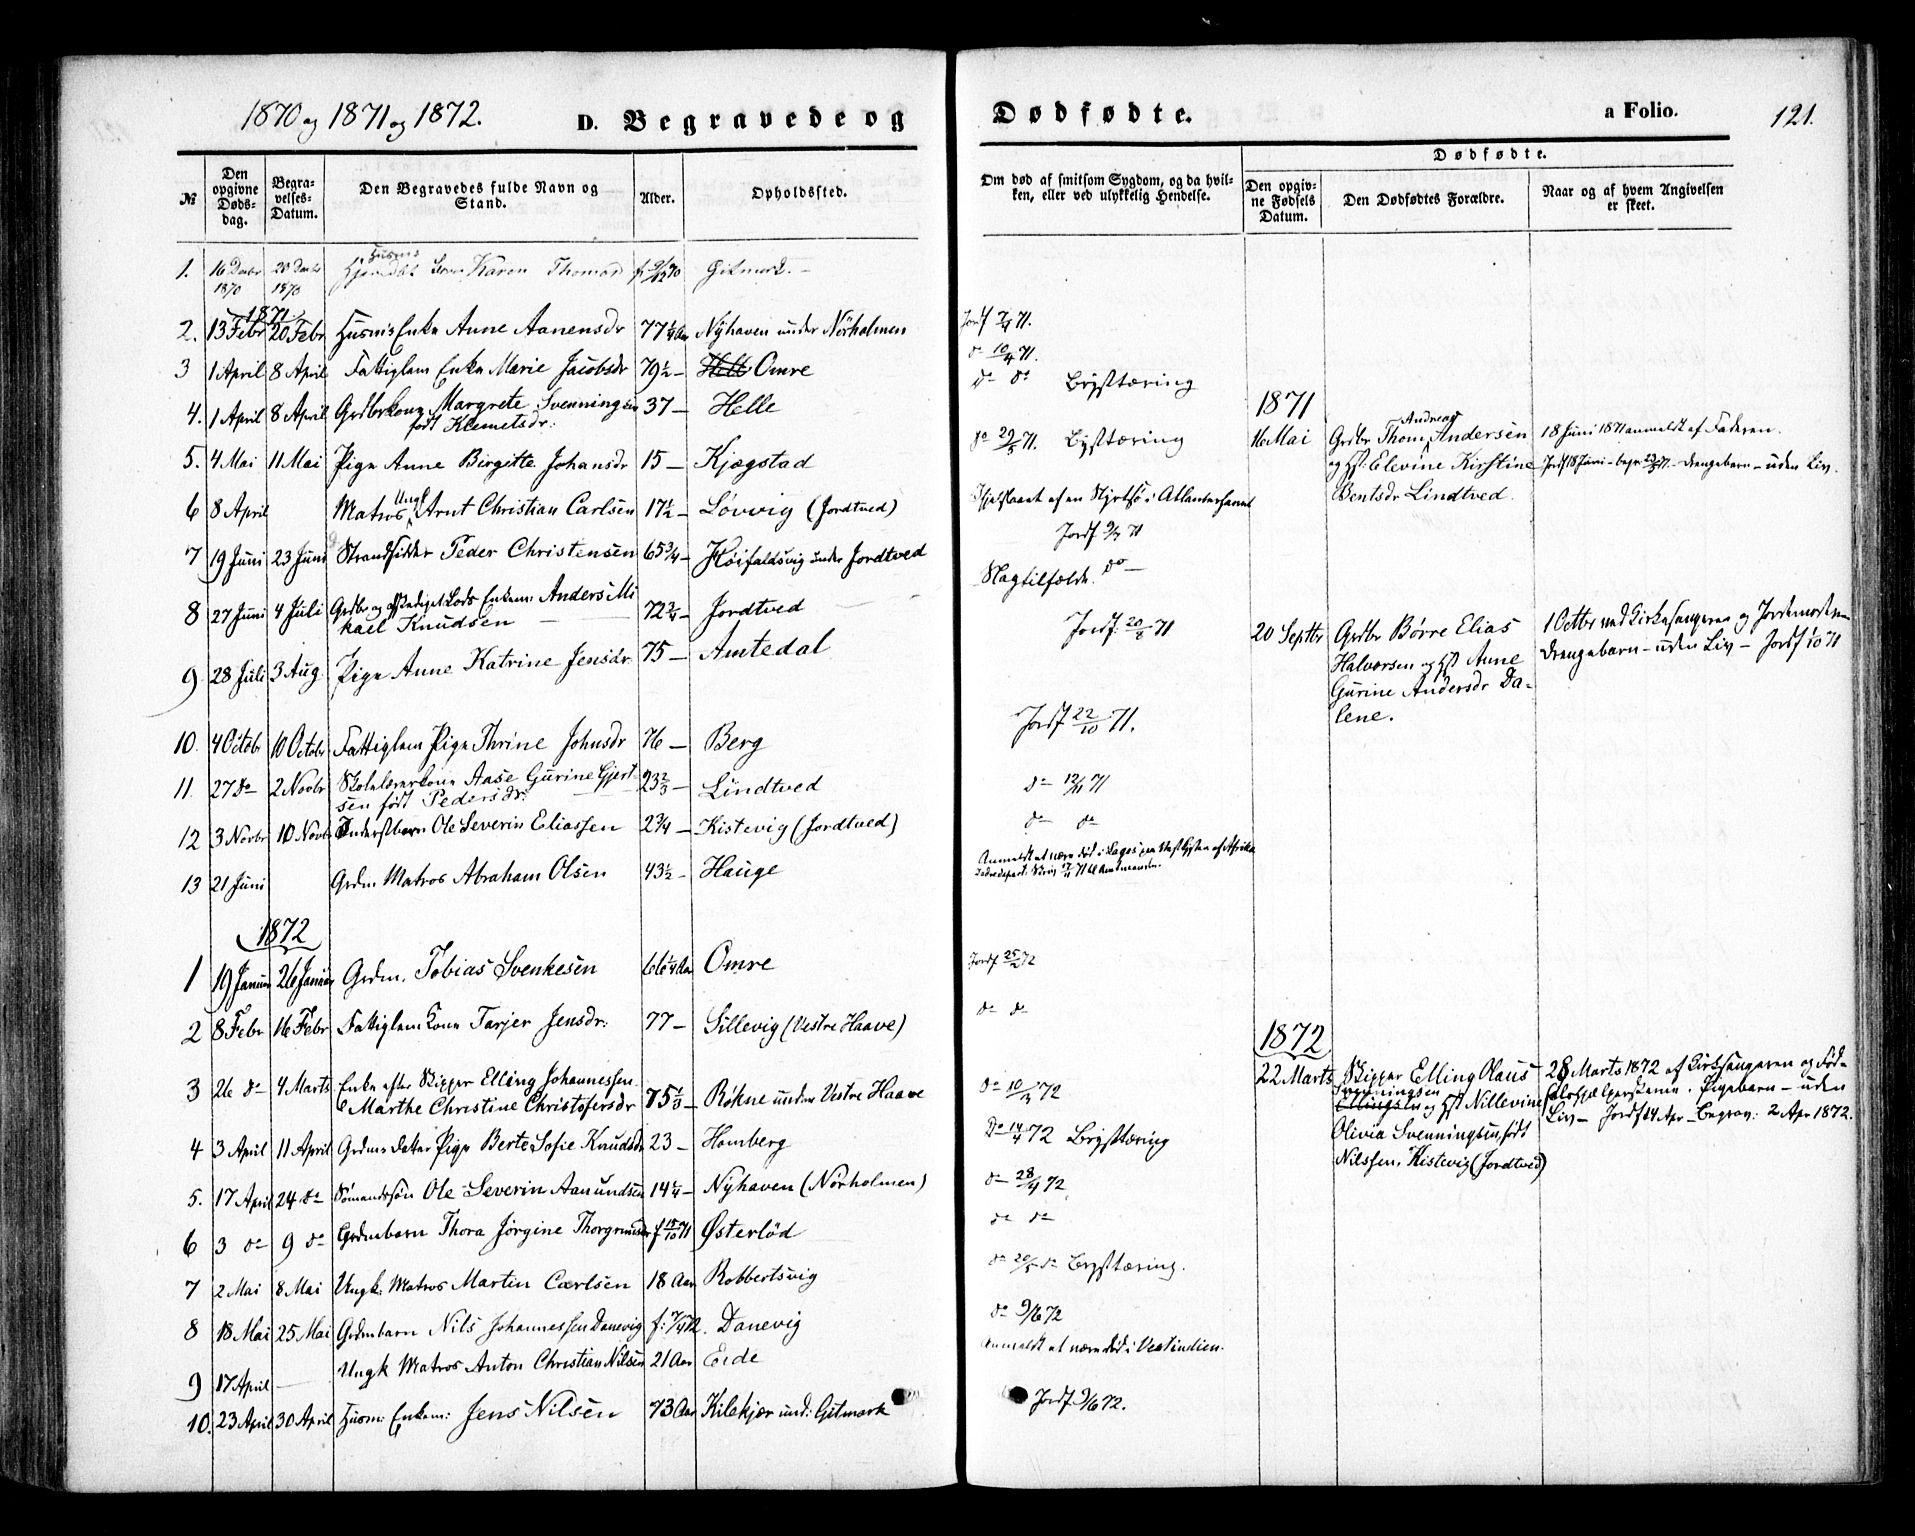 1870 og 1871 og 1872.
D. Begravede og
Dødfødte.
a Folio.
121.
№
Den opgivne Døds-dag.
Begra-velses-Datum.
Den Begravedes fulde Navn og Stand.
Alder.
Opholdssted.
Om død af smitsom Sygdom, og da hvil-
ken, eller ved ulykkelig Hendelse.
Dødfødte.
Den opgiv-ne Fødsels Datum.
Den Dødfødtes Forældre.
Naar og af hvem Angivelsen er skeet.
1. 16 Decbr 1870 20 Decbr 1870 Karen Thomas Gitmark.
1871
2. 13 Febr 20 Febr Husm's Enke Anne Aanensdr 77 1/4 Aar Nÿhaven under Nörholmen Jordf 71.
3 1 April 8 April Fattiglem Enke Marie Jacobsdr 79 1/2 – Omre do 10/4 71.
4. 1 April 8 April Grdbrkone Margrete Svenningsen
født Klemetsdr: 37 – Helle do do Brÿsttæring
5. 4 Mai 11 Mai Pige Anne Birgitte Johansdr 15 – Kjægstad do 29/5 71. Brÿsttæring
6 8 April Matros Ungk Arnt Christian Carlsen 17 1/2 – Løvvig (Jordtved) Ihjelslaaet af en Styrtsø i Atlanterhavet
7 19 Juni 23 Juni Strandsidder Peder Christensen 65 3/4 – Höifaldsvig under Jordtved Jordf 9/7 71
8 27 Juni 4 Juli Grdbr og afskediget Lods Enkem: Anders Mi
kael Knudsen 72 3/4 – Jordtved Slagtilfælde. do –
9 28 Juli 3 Aug. Pige Anne Katrine Jensdr 75 – Amtedal Jordf. 20/8 71
10. 4 Octobr 10 Octobr Fattiglem Pige Thrine Johnsdr 76 – Berg Jordf 22/10 71.
11. 27 do 2 Novbr Skolelærerkone Aase Gurine Gjert-
sen født Pedersdr. 23 2/3 – Lindtved do 12/11 71
12 3 Novbr 10 Novbr Inderstbarn Ole Severin Eliassen 2 3/4 – Kistevig (Jordtved) do do
13 21 Juni Grdm Matros Abraham Olsen 43 1/2 – Hauge Anmeldt at være død i Lagos paa Vestkysten af Afrika
1871
16 Mai Grdbr Thom Andreas Andersen
og Hst: Elevine Kirstine
Bentsdr Lindtved.
18 Juni 1871 anmeldt af Faderen.
Jordf 18 Juni – begr. 71. – Drengebarn – uden Liv.
20 Septbr Grdbr Børre Elias
Halvorsen og Hst Anne
Gurine Andersdr Da-
lene.
1 Octbr ved Kirkesangeren og Jordemoderen
Drengebarn – uden Liv – Jordf 1/10 71
1872
1 19 Januar 26 Januar Grdm. Tobias Svenkesen 66 1/4 Aar Omre Jordf 25/2 72
2 8 Febr 16 Febr Fattiglem Kone Tarjer Jensdr: 77 – Sillevig (Vestre Haave) do do
3 26 do 4 Marts Enke efter Skipper Elling Johannessen
Marthe Christine Christofersdr 75 1/3 – Røkne under Vestre Haave do 10/3 72
4 3 April 11 April Grdms datter Pige Berte Sofie Knudsdr 23 – Homberg Do 14/4 72 Brÿsttæring
5. 17 April 24 do Sömandssön Ole Severin Aanundsen 14 1/4 – Nÿhaven (Nörholmen) do 28/4 72
6 3 do 9 do Grdmbarn Thora Jörgine Thorgrimsdr f 15/10 71 Østerlöd do do
7 2 Mai 8 Mai Ungk: Matros Martin Carlsen 18 Aar Robbertsvig do 20/5 do Brÿsttæring.
8 18 Mai 25 Mai Grdmbarn Nils Johannessen Danevig f: 72. Danevig do 9/6 72
9 17 April – Ungk Matros Anton Christian Nilsen 21 Aar Eide Anmeldt at være död i Vestindien.
10. 23 April 30 April Husm: Enkem: Jens Nilsen 73 Aar Kilekjær und: Gitmark Jordf 9/6 72.
1872
22 Marts Skipper Elling Olaus
Svenningsen
Ellingsen og Hst Nillevine
Olivia Svenningsen, født
Nilssen, Kistevig (Jordtved)
28 Marts 1872 af Kirkesangeren og Föd-
selshjælpersken. Pigebarn – uden
Liv – Jordf 14 Apr – Begrav: 2 Apr 1872.